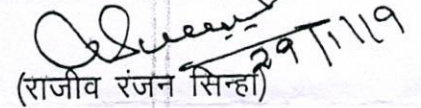 29/11/19
(राजीव रंजन सिन्हा)